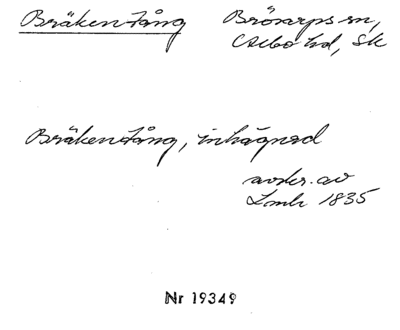 Bräkentång Brösarps sn,
Albo hd, Sk
Bräkentång, inhägnad
avskr. av
Lmh 1835
Nr 19349